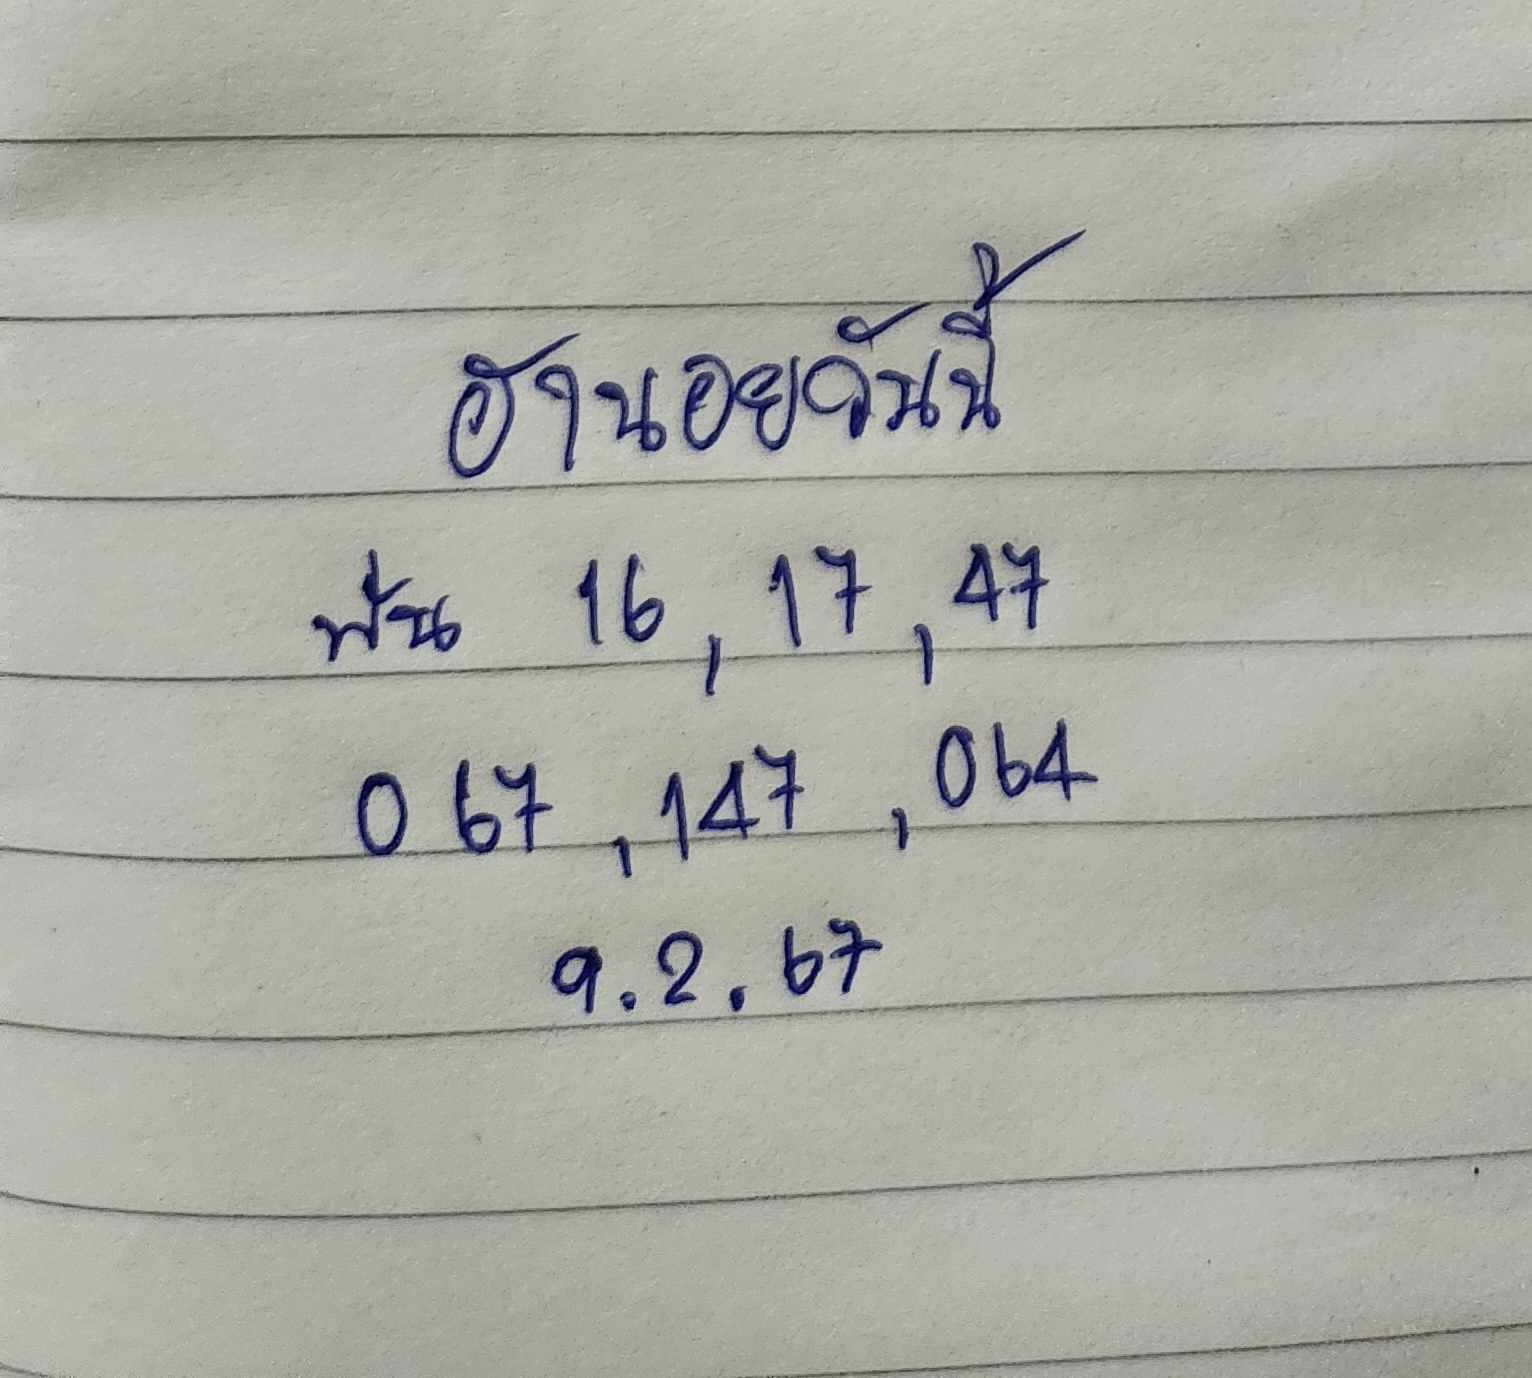 ฮานอยวันนี้
ฟัน 16, 17, 47
067, 147, 064
9.2.67